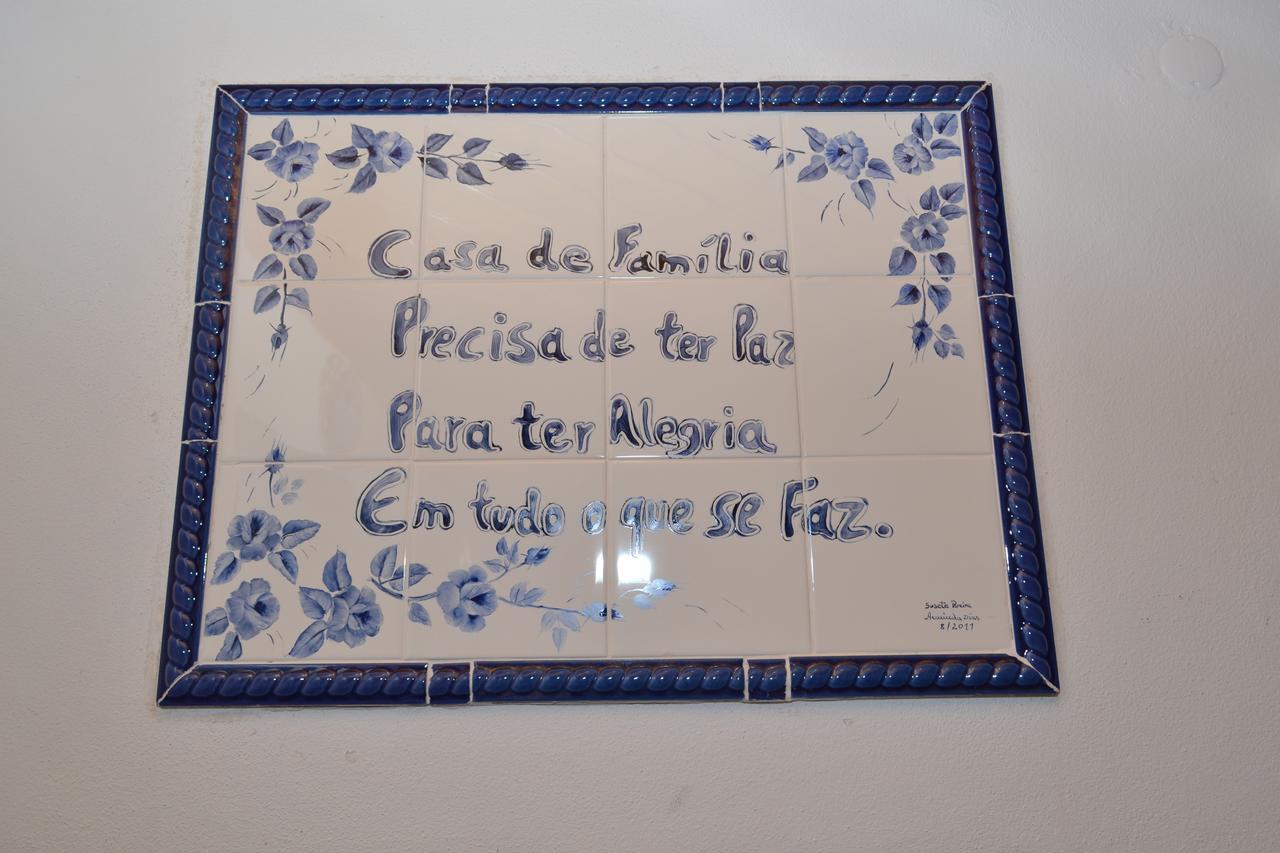 Casa de Família
Precisa de ter Paz
Para ter Alegria
Em tudo o que se Faz.
Susete
Dias
8/2011